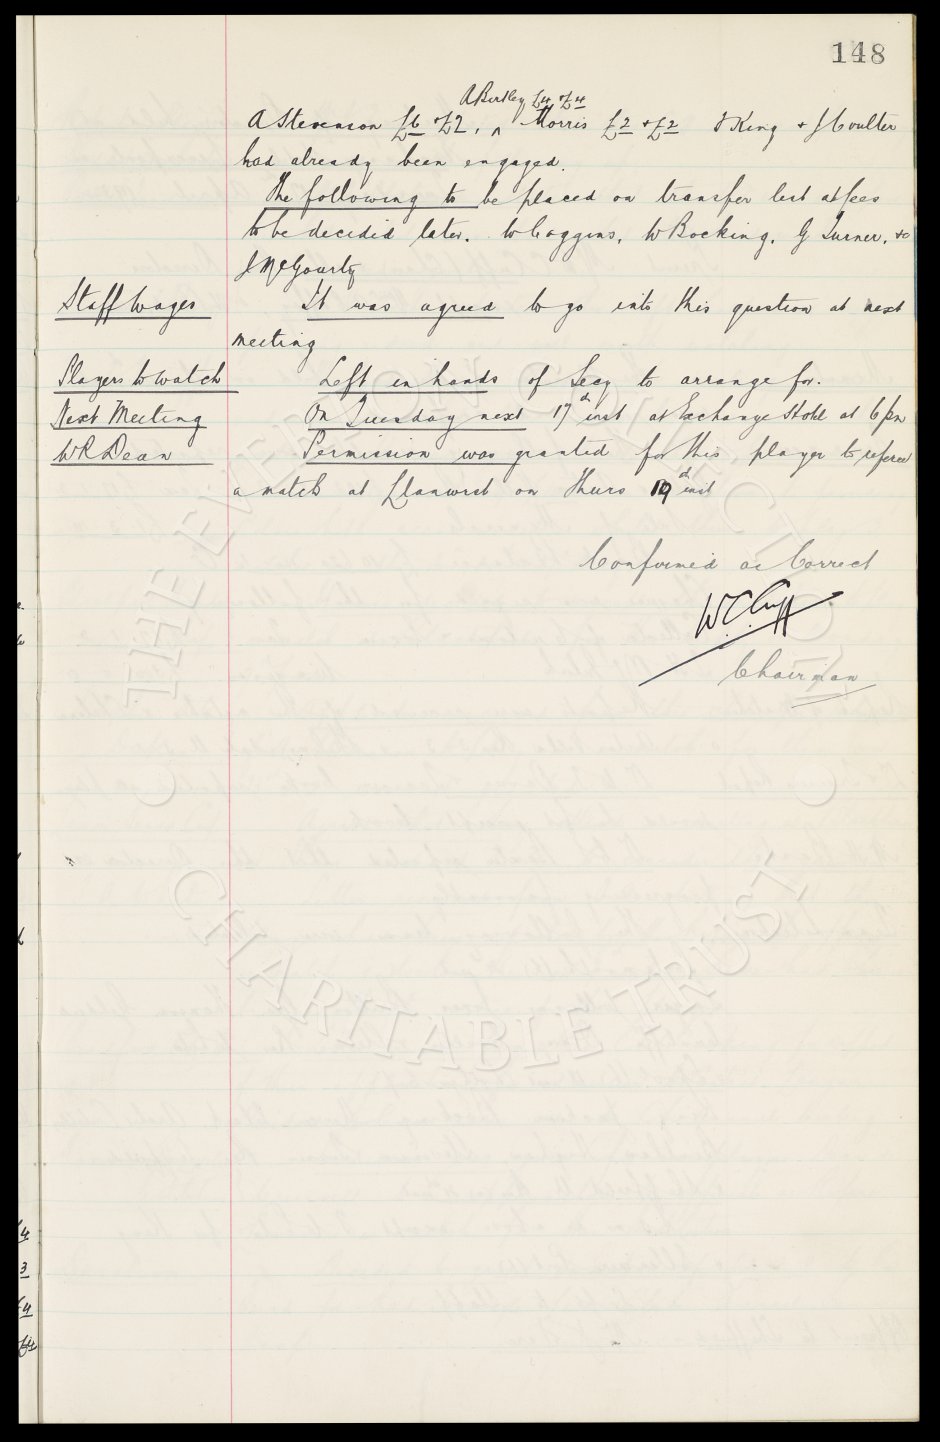 148
A Birtley £4 & £4
A Stevenson £6 & £2, ^ Morris £2 & £2 T King & J Coulter
had already been engaged.
The following to be placed on transfer list at fees
to be decided later. W Coggins, W Bocking, G Turner, &
J McGourty
Staff Wages It was agreed to go into this question at next
meeting
Players to watch Left in hands of Secy to arrange for.
Next Meeting On Tuesday next 17th inst at Exchange Hotel at 6 pm
WR Dean Permission was granted for this player to referee
a match at Llanwrst on Thurs 19th inst
Confirmed as Correct
W.C. Cuff
Chairman
THE EVERTON COLLECTION
CHARITABLE TRUST